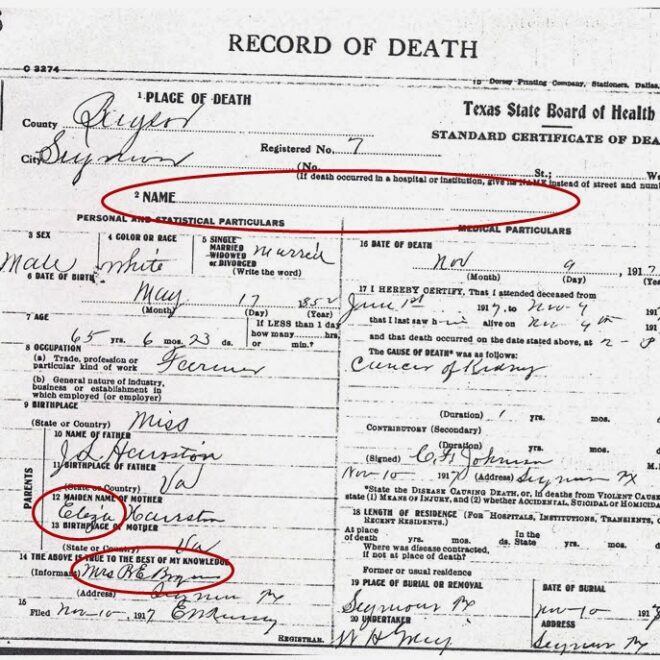 RECORD OF DEATH
C 3274
Dorsey Printing Company, Stationers, Dallas
1 PLACE OF DEATH
Texas State Board of Health
County Baylor
STANDARD CERTIFICATE OF DEA
City Seymour
Registered No. 7
(No. St.; W
(If death occurred in a hospital or institution, give its NAME instead of street and num
2 NAME
PERSONAL AND STATISTICAL PARTICULARS
3 SEX
Male
4 COLOR OR RACE
White
5 SINGLE
MARRIED
WIDOWED
or DIVORCED
(Write the word)
Married
6 DATE OF BIRTH
May 17 1852
(Month) (Day) (Year)
7 AGE
65 yrs. 6 mos. 23 ds.
If LESS than 1 day
how many hrs.
or min.?
8 OCCUPATION
(a) Trade, profession or
particular kind of work Farmer
(b) General nature of industry,
business or establishment in
which employed (or employer)
9 BIRTHPLACE
(State or Country) Miss
PARENTS
10 NAME OF FATHER
J L Hairston
11 BIRTHPLACE OF FATHER
(State or Country) Va
12 MAIDEN NAME OF MOTHER
Eliza Hairston
13 BIRTHPLACE OF MOTHER
(State or Country) Va
14 THE ABOVE IS TRUE TO THE BEST OF MY KNOWLEDGE
(Informant) Mrs R E
(Address) Seymour Tx
15
Filed Nov-10- 1917
REGISTRAR.
MEDICAL PARTICULARS
16 DATE OF DEATH
Nov 9 1917
(Month) (Day) (Yea
17 I HEREBY CERTIFY, That I attended deceased from
June 1st 1917, to Nov-9 191
that I last saw him alive on Nov-9th 191
and that death occurred on the date stated above, at 2-
The CAUSE OF DEATH* was as follows:
Cancer of Kidney
(Duration) 1 yrs. mos. d
CONTRIBUTORY (Secondary)
(Duration) yrs. mos.
(Signed) C. F. Johnson M.
Nov-10- 1917 (Address) Seymour Tx
*State the DISEASE CAUSING DEATH, or, in deaths from VIOLENT CAUSE
state (1) MEANS OF INJURY, and (2) whether ACCIDENTAL, SUICIDAL OF HOMICIDA
18 LENGTH OF RESIDENCE (FOR HOSPITALS, INSTITUTIONS, TRANSIENTS,
RECENT RESIDENTS.)
At place
of death yrs. mos. ds.
In the
State yrs. mos.
Where was disease contracted,
if not at place of death?
Former or usual residence
19 PLACE OF BURIAL OR REMOVAL
Seymour Tx
DATE OF BURIAL
Nov-10- 191
20 UNDERTAKER
W H
ADDRESS
Seymour Tx